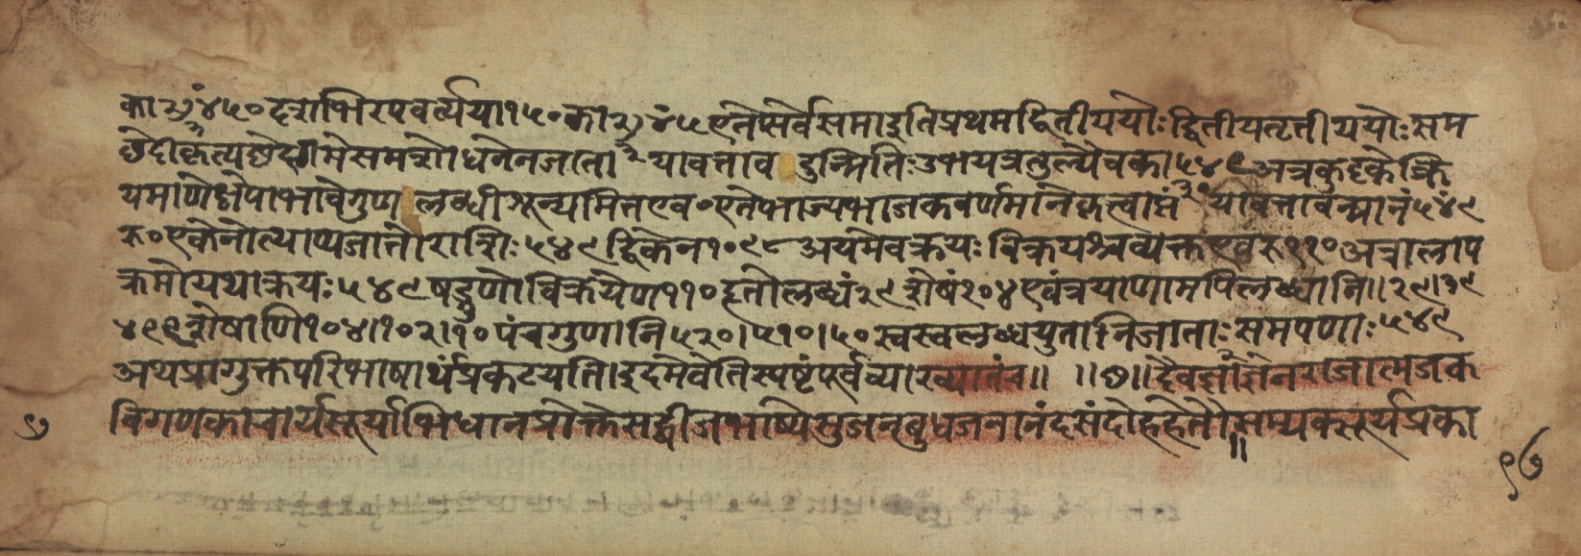 का ३ रूं ४५० दशभिरपवर्त्य या १५० का ३ रूं ४५ एते सर्वे समा इति प्रथमद्वितीययोः द्वितीयतृतीययोः सम
छेदीकृत्य छेदगमे समशोधनेन जाता यावत्ताव दुन्मितिः उभयत्र तुल्यैवका ५४९ अत्र कुट्टके क्रि
यमाणे क्षेपाभावे गुण लब्धी शून्यमित एव ० एते भाज्यभाजकवर्णमाने कृत्वाप्तं यावत्तावन्मानं ५४९
रू ० एकेनोत्थाप्य जातो राशिः ५४९ द्विकेन १०९८ अयमेव क्रयः विक्रयश्च व्यक्त एव रू ११० अत्रालाप
क्रमो यथा क्रयः ५४९ षड्गुणो विक्रयेण ११० हृतो लब्धं २९ शेषं १०४ एवं त्रयाणामपि लब्धानि ॥ २९।३९
४९९ शेषाणि १०४।१०२।१० पंचगुणानि ५२०।५१०।५० स्वस्वलब्धयुतानि जाताः समपणाः ५४९
अथ प्रागुक्तपरिभाषार्थं प्रकटयति। इदमेवेति स्पष्टं पूर्वं व्याख्यातं च ॥ ॥ छ ॥ दैवज्ञज्ञेनराजात्मजक
विगणकाचार्यसूर्याभिधानप्रोक्ते सद्बीजभाष्ये सुजनबुधजनानंदसंदोहहेतौ सम्यक् सूर्यप्रका
९७